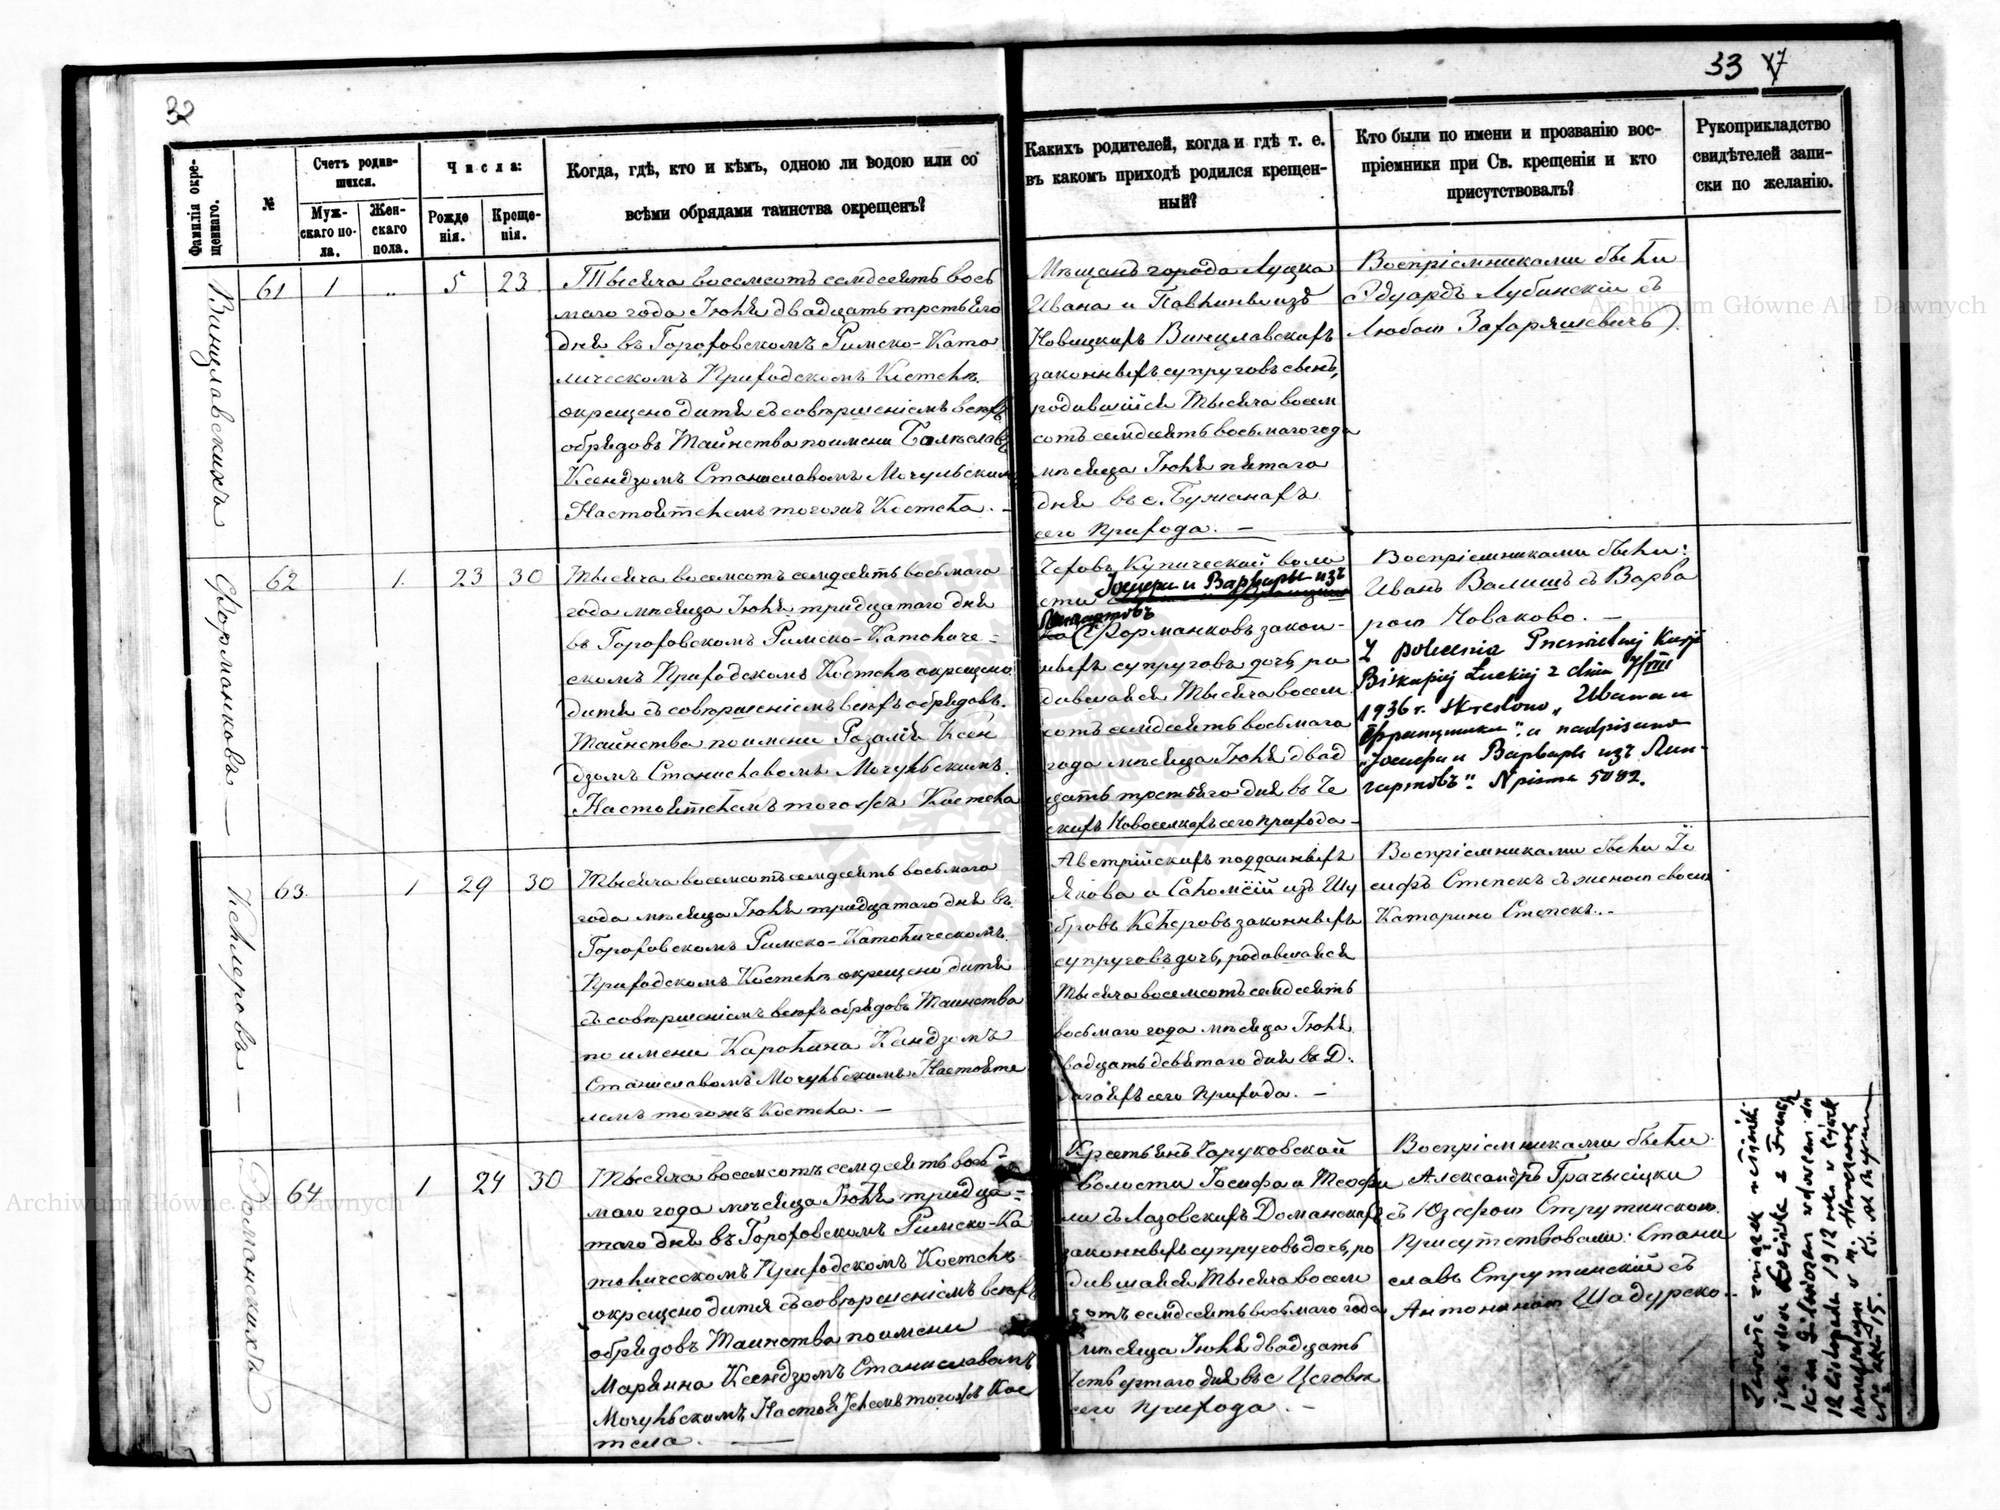 32
33
Фамилія окрещеннаго.
№
Счетъ родившихся.
Мужскаго пола.
Женскаго пола.
Числа:
Рожденія.
Крещенія.
Когда, гдѣ, кто и кѣмъ, одною ли водою или со
всѣми обрядами таинства окрещенъ?
Какихъ родителей, когда и гдѣ т. е.
въ какомъ приходѣ родился крещен-
ный?
Кто были по имени и прозванію вос-
пріемники при Св. крещеніи и кто
присутствовалъ?
Рукоприкладство
свидѣтелей запи-
ски по желанію.
Винцлавскихъ
61 1 „ 5 23
Тысяча восемсотъ семдесятъ вось
маго года Іюля двадцать третьяго
дня въ Гороховскомъ Римско-Като
лическомъ Приходскомъ Костелѣ
окрещено дитя съ совершеніемъ всѣхъ
обрядовъ Таинства по имени Болеславъ
Ксендзомъ Станиславомъ Мочульскимъ
Настоятелемъ тогожъ Костела. –
Мѣщанъ города Луцка
Ивана и Павлины изъ
Новицкихъ Винцлавскихъ
законныхъ супруговъ сынъ,
родившійся Тысяча восем
сотъ семдесятъ восьмаго года
мѣсяца Іюля пятаго
дня въ с. Бужанахъ
сего Прихода. –
Воспріемниками были
Эдуардъ Лубинскій съ
Любою Захаряшевичъ.
Форманковъ. –
62 1. 23 30
Тысяча восемсотъ семдесятъ восьмаго
года мѣсяца Іюля тридцатаго дня
въ Гороховскомъ Римско-Католиче-
скомъ Приходскомъ Костелѣ окрещено
дитя съ совершеніемъ всѣхъ обрядовъ
Таинства по имени Розалія Ксен
дзомъ Станиславомъ Мочульскимъ
Настоятелемъ тогожъ Костела
Чеховъ Купической воло
сти Іосифа и Варвары изъ
Лингартовъ
Форманковъ закон-
ныхъ супруговъ дочь, ро
дившаяся Тысяча восем
сотъ семдесятъ восьмаго
года мѣсяца Іюля двад
цать третьяго дня въ Че
скихъ Новоселкахъ сего прихода –
Воспріемниками были:
Иванъ Валишъ съ Варва
рою Новаково. –
Z polecenia Prześwietnej Kurji
Biskupiej Łuckiej z dnia 7/VIII
1936 r. skreślono „Ивана и
Францишки", a nadpisano
„Іосифа и Варвары изъ Лин-
гартовъ". N pisma 5082.
Келлеровъ –
63. 1 29 30
Тысяча восемсотъ семдесятъ восьмаго
года мѣсяца Іюля тридцатаго дня въ
Гороховскомъ Римско-Католическомъ
Приходскомъ Костелѣ окрещено дитя
съ совершеніемъ всѣхъ обрядовъ Таинства
по имени Каролина Ксендзомъ
Станиславомъ Мочульскимъ Настояте
лемъ тогожъ Костела. –
Австрійскихъ подданныхъ
Якова и Саломеіи изъ Шу
бровъ Келеровъ законныхъ
супруговъ дочь, родившаяся
Тысяча восемсотъ семдесятъ
восьмаго года мѣсяца Іюля
двадцать девятаго дня въ
сего Прихода. –
Воспріемниками были Іо
сифъ Степекъ съ женою своею
Катариною Степекъ. –
Доманскихъ
64 1 24 30
Тысяча восемсотъ семдесятъ вось-
маго года мѣсяца Іюля тридца-
таго дня въ Гороховскомъ Римско-Ка
толическомъ Приходскомъ Костелѣ
окрещено дитя съ совершеніемъ всѣхъ
обрядовъ Таинства по имени
Марянна Ксендзомъ Станиславомъ
Мочульскимъ Настоятелемъ тогожъ Кос
тела. –
Крестьянъ Чаруковской
волости Іосифа и Теофи
ли съ Лазовскихъ Доманскихъ
законныхъ супруговъ дочь, ро
дившаяся Тысяча восем
сотъ семдесятъ восьмаго года
мѣсяца Іюля двадцать
четвертаго дня въ с.
сего Прихода. –
Воспріемниками были
Александръ
съ Юзефою Струтинскою.
Присутствовали: Стани
славъ Струтинскій съ
Антониною Шадурско..
12 listopada 1912 roku
Archiwum Główne Akt Dawnych
Archiwum Główne Akt Dawnych